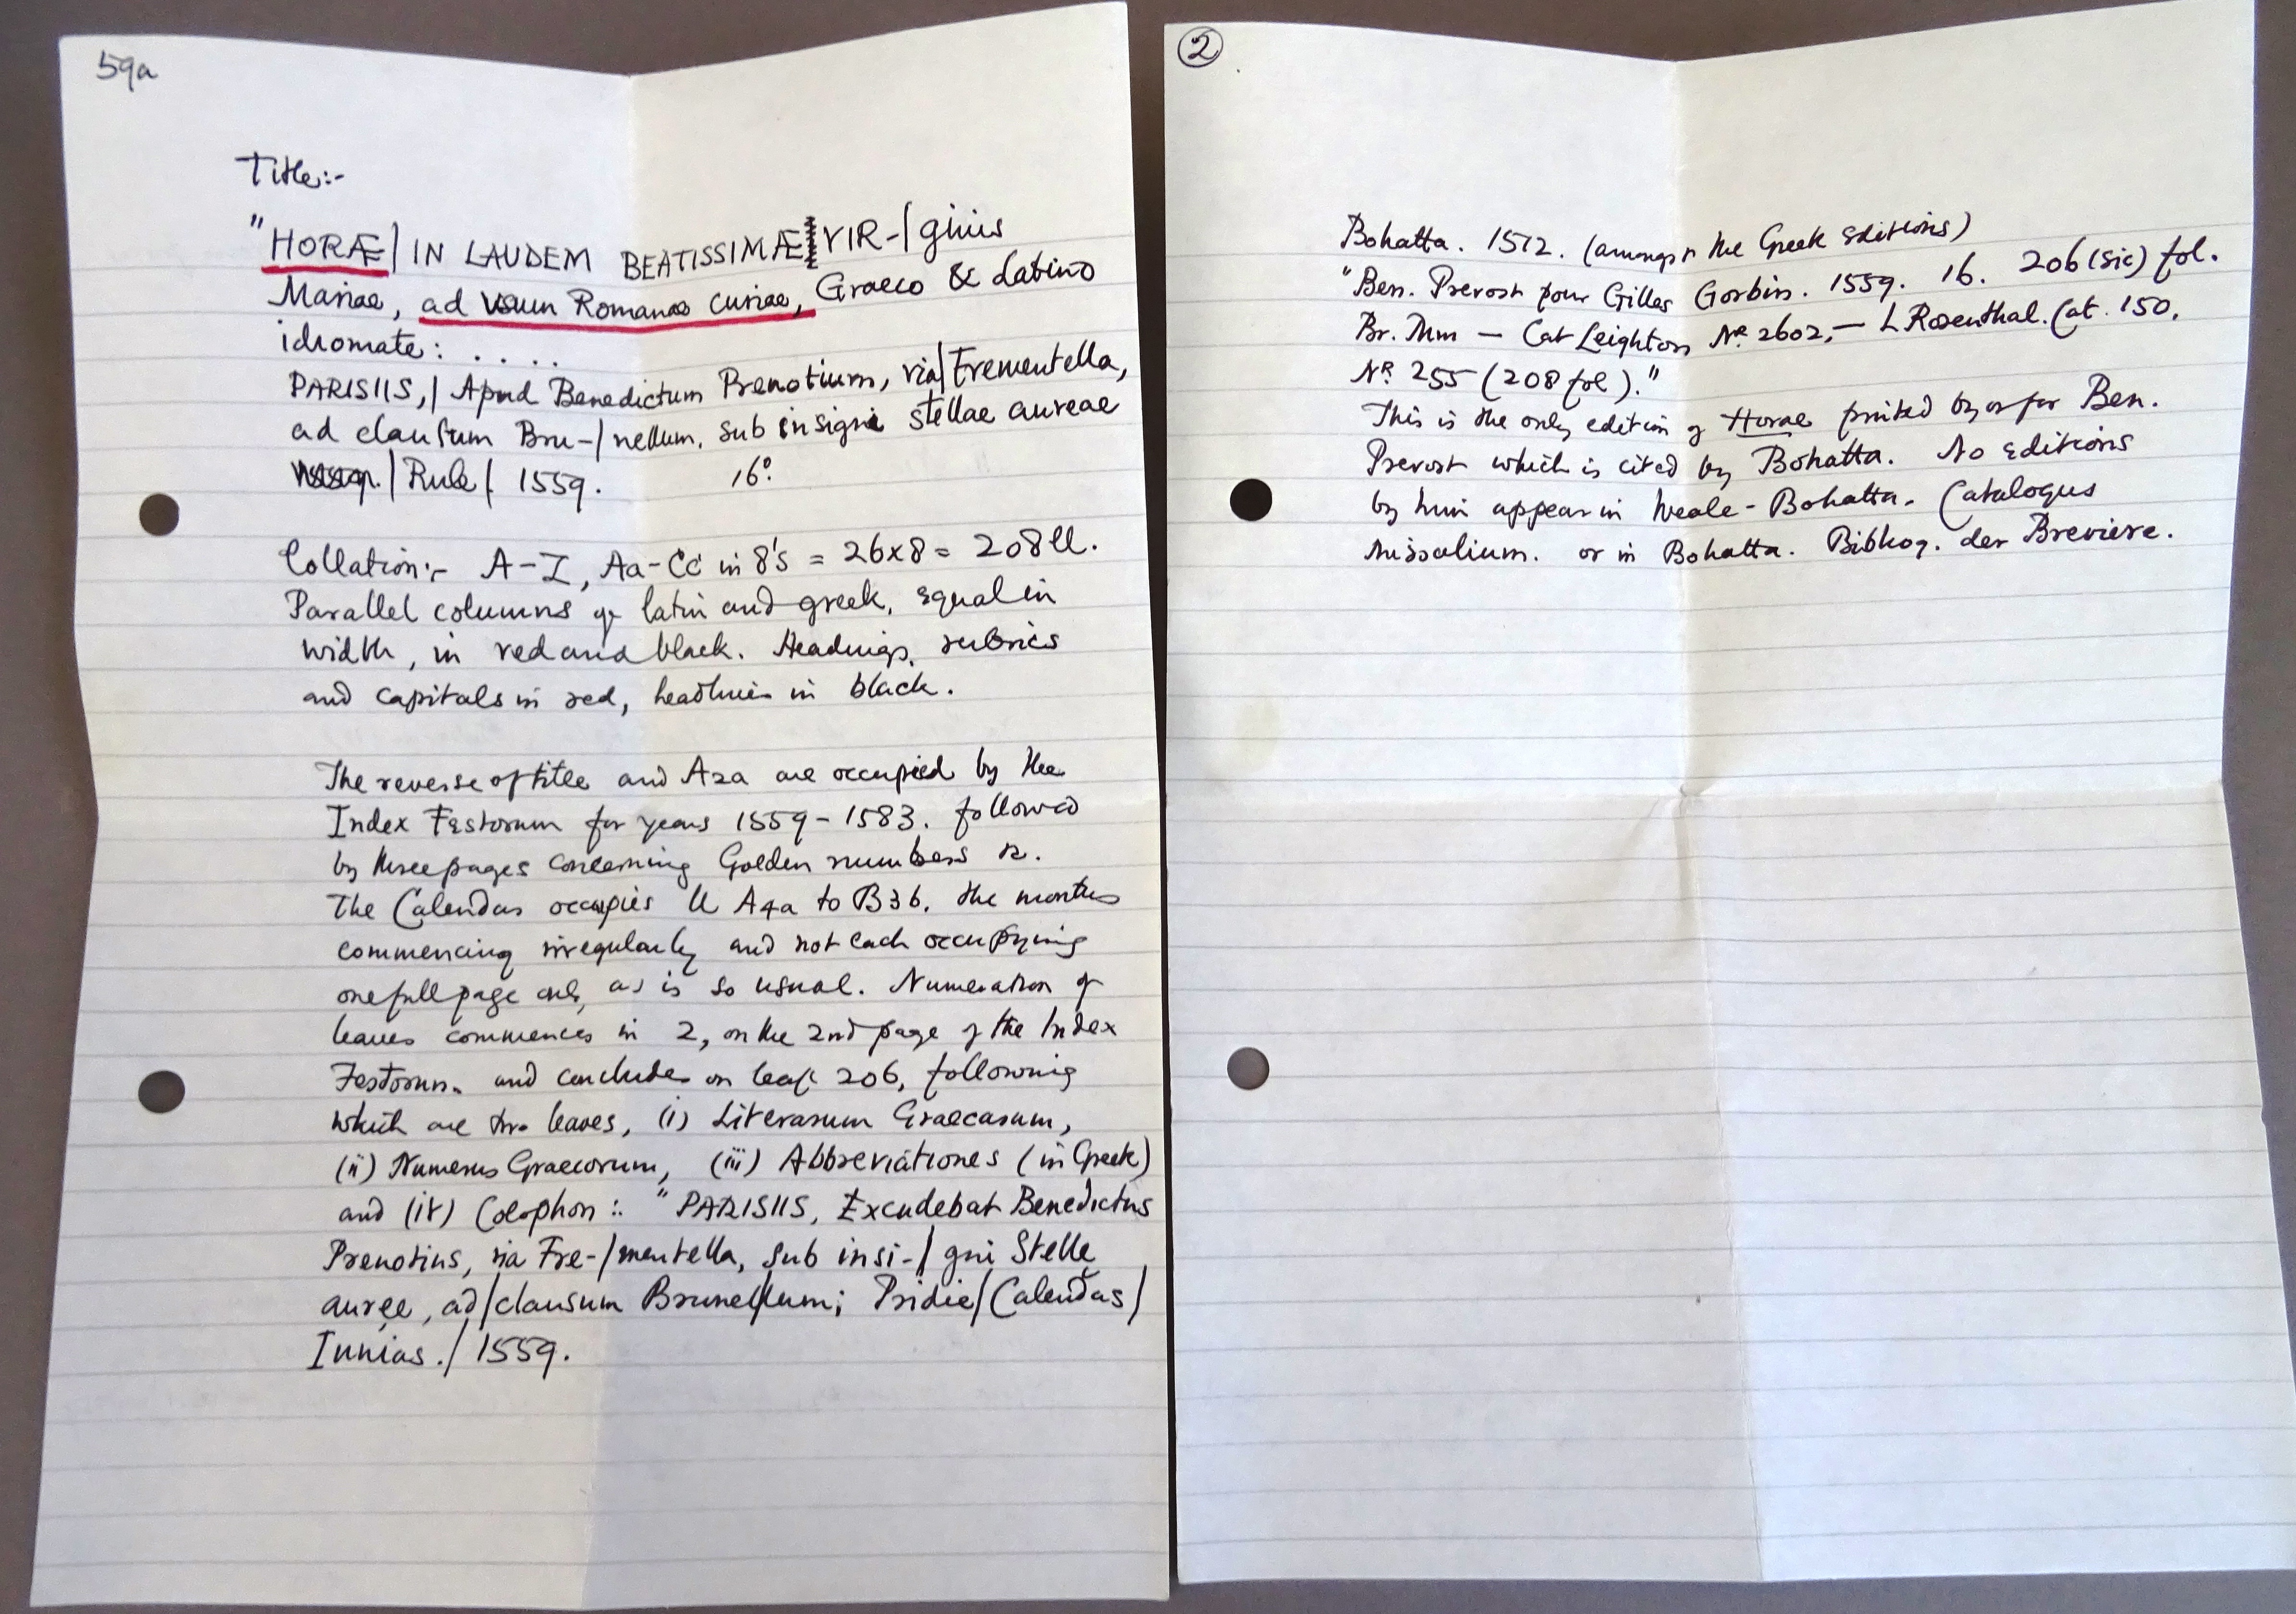 59a
Title:-
"HORÆ/ IN LAUDEM BEATISSIMÆ VIR-/ginis
Mariae, ad Vsum Romanae Curiae, Graeco & Latino
idiomate: ....
PARISIIS,/ Apud Benedictum Prenotium, via/Frementella,
ad clausum Bru-/nellum, sub insigni stellae aureae
/Rule/. 1559. 16º.
Collation:- A-Z, Aa-Cc in 8's = 26x8 = 208 ll.
Parallel columns of latin and greek, equal in
width, in red and black. Headings, rubrics
and capitals in red, headlines in black.
The reverse of title and A2a are occupied by the
Index Festorum for years 1559-1583. followed
by three pages concerning Golden numbers &.
The Calendar occupies ll A4a to B3b, the months
commencing irregularly and not each occupying
one full page only as is so usual. Numeration of
leaves commences in 2, on the 2nd page of the Index
Festorum. and concludes on leaf 206, following
which are two leaves, (i) Literarum Graecarum,
(ii) Numerus Graecorum, (iii) Abbreviationes (in Greek)
and (iv) Colophon:. "PARISIIS, Excudebat Benedictus
Prenotius, via Fre-/mentella, sub insi-/gni Stelle
auree, ad/clausum Brunel/lum; Pridie/Calendas/
Iunias./ 1559.
2
Bohatta. 1572. (amongst the Greek Editions)
"Ben. Prevost pour Gilles Gorbin. 1559. 16. 206 (sic) fol.
Br. Mm — Cat Leighton Nº 2602, — L Rosenthal. Cat. 150,
Nº 255 (208 fol)."
This is the only edition of Horae printed by or for Ben.
Prevost which is cited by Bohatta. No editions
by him appear in Weale-Bohatta. Catalogus
Missalium. or in Bohatta. Bibliog. der Breviere.